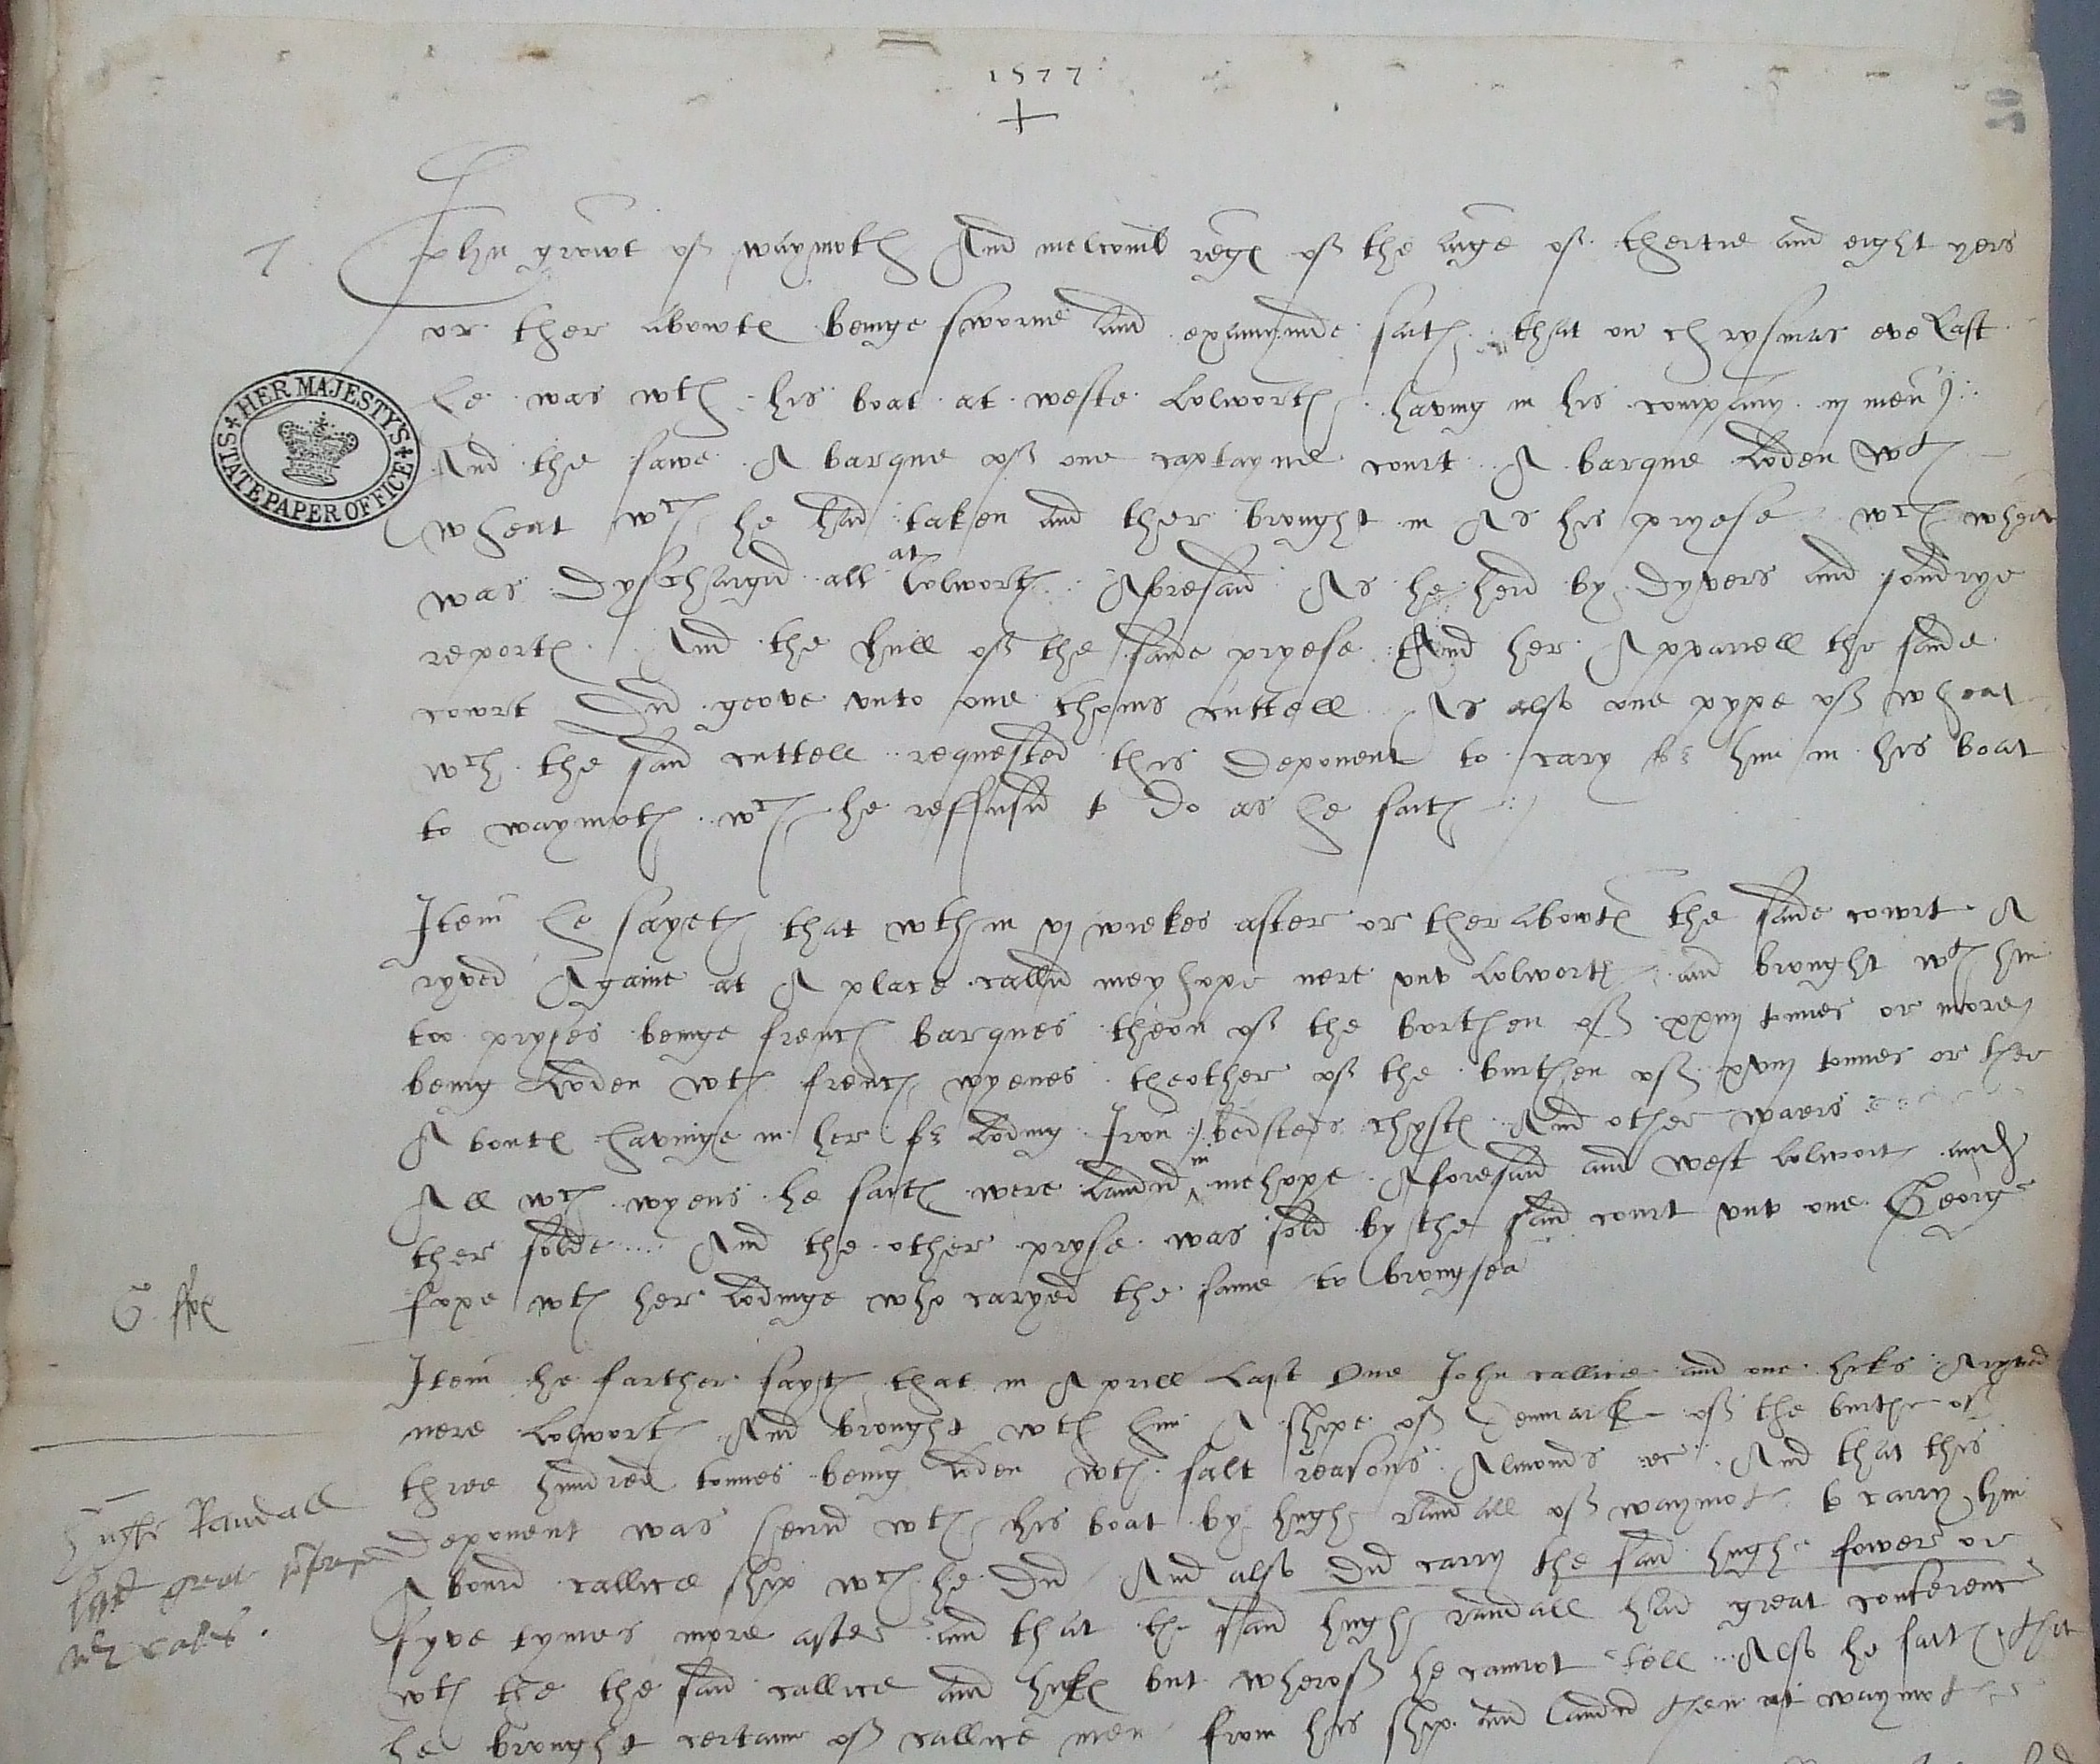 1577
20
John growt off waymoth And melcomb regs off the aige off thertie and eight yers
or ther abowts beinge sworne and examynde saith that on chrysmas eve Last
he was wth his boat at weste Lolworth having in his company iij men
And the sawe A barque off one captayne court A barque Loden wth
wheat wch he had taken and ther brought in As his pryese wch wheat
was dyschargid all at Lolworth Aforesaid As he herd by dyvers and sondrye
reports And the hull off the saide pryese And her Apparrell the saide
court did geove unto one thoms cuttell As also one pype off wheat
wch the said cuttell requested this deponent to cary for him in his boat
to waymoth wch he reffusid to do as he saith
Item he sayeth that wthin vj wiekes after or ther abowts the saide court A
ryved Againe at A place callid meyhope nere unto Lolworth and brought wth him
too pryses beinge french barques theon off the borthen off xxiiij tonnes or more
being Loden wth french wyenes theother off the burthen off xviij tonnes or ther
Abouts havinge in her for Loding Iron bedsteds chysts And other waers
All wch wyens he saith were Landid in mehope Aforesaid and west Lolworth and
ther solde And the other pryse was sold by the said court unto one George
fope wth her Lodinge who caryed the same to brongsea
G. ffox
Item he farther sayth that in Aprill Last One John callice and one hicks Aryved
nere Lolworth And brought wth him A shipe off Denmark off the burthe off
three hundred tonnes being Loden wth salt reasons Almonds &c And that this
Hughe Randall
had great conference
wth Cales.
deponent was hierid wth his boat by hugh randall off waymoth to carry him
Abourd callice ship wch he did And also did carry the said hugh fower or
fyve tymes more after and that the said hugh randall had great conference
wth the the said callice and hicks but wheroff he cannot tell Also he saith that
he brought certaine off callice men from his ship and Landid them at waymoth
HER MAJESTY'S STATE PAPER OFFICE